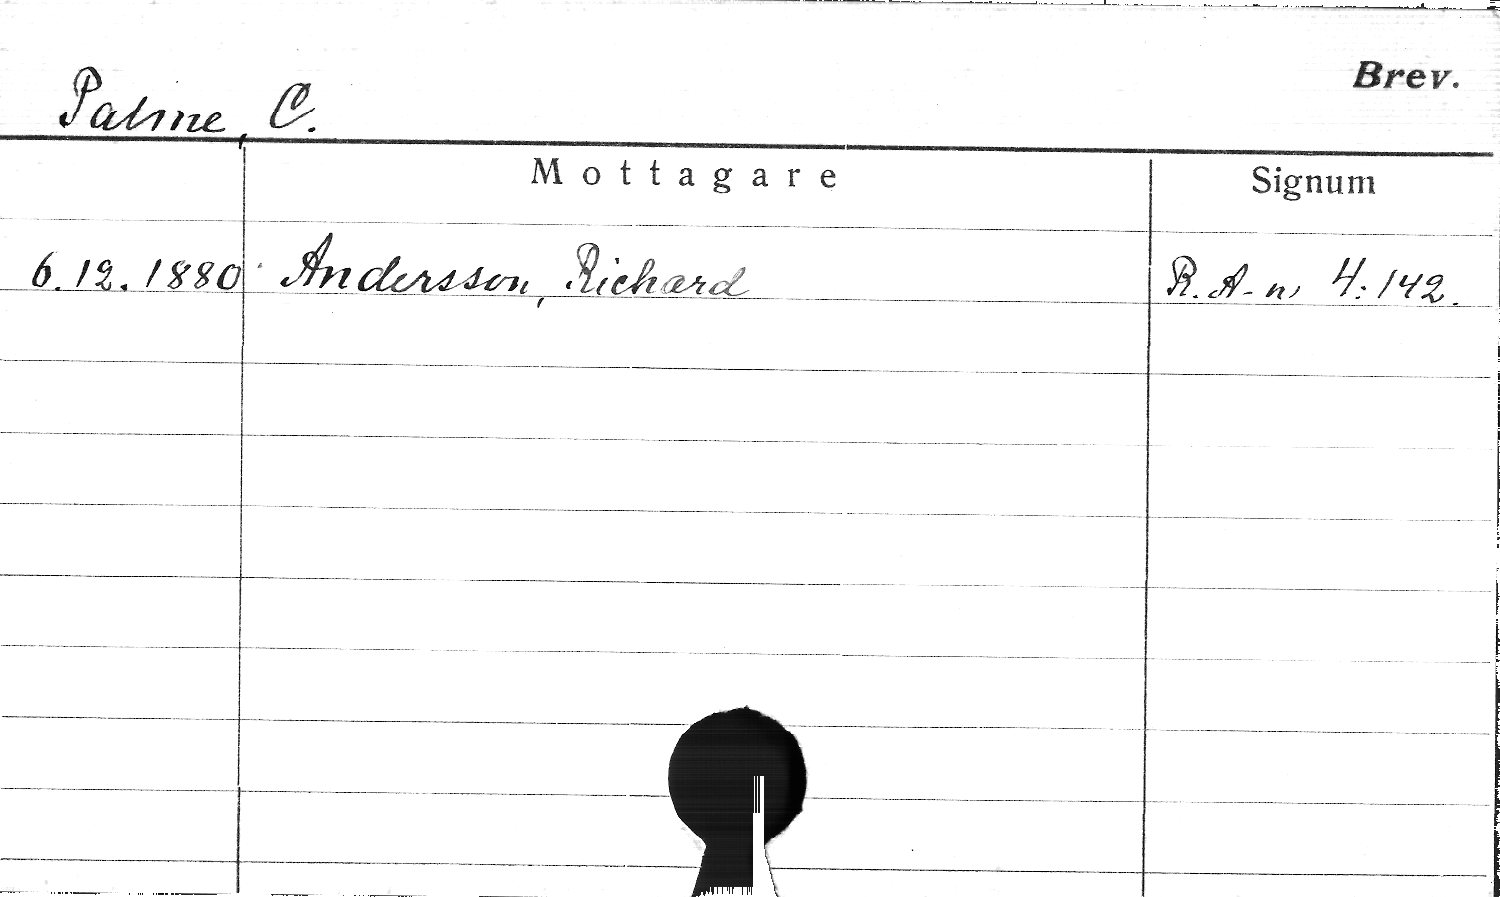 Brev.
Palme, C.
Mottagare Signum
6.12.1880 Andersson, Richard R. A-n, 4:142.